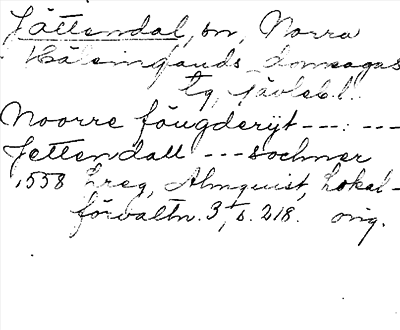 Jättendal, sn, Norra
Hälsinglands domsagas
tg, Gävleb.l.
Noorre fougderijt ---:---
Jettendall --- sochner
1558 Lreg, Almquist, Lokal-
förvaltn. 3, s. 218. orig.